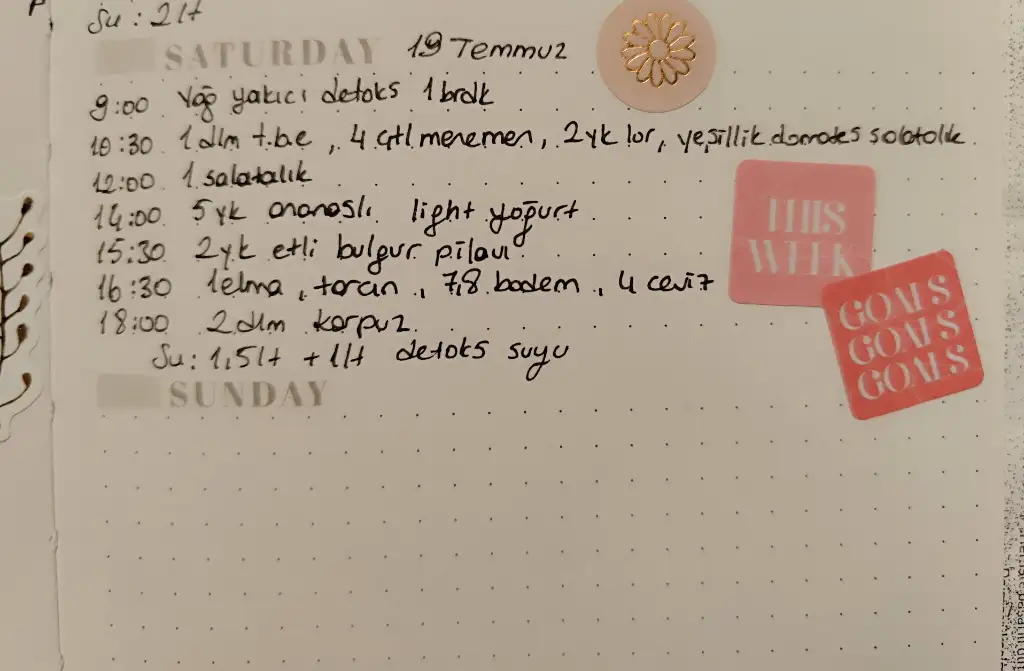 Su : 2 lt
SATURDAY 19 Temmuz
9:00 Yağ yakıcı detoks 1 brdk
10:30 1 dlm t.b.e , 4 çtl menemen, 2 yk lor, yeşillik domates salatalık.
12:00 1 salatalık
14:00 5 yk ananaslı light yoğurt
15:30 2 yk etli bulgur pilavı
16:30 1 elma , tarcın , 7,8 badem , 4 ceviz
18:00 2 dlm karpuz
Su : 1,5 lt + 1 lt detoks suyu
SUNDAY
THIS
WEEK
GOALS
GOALS
GOALS